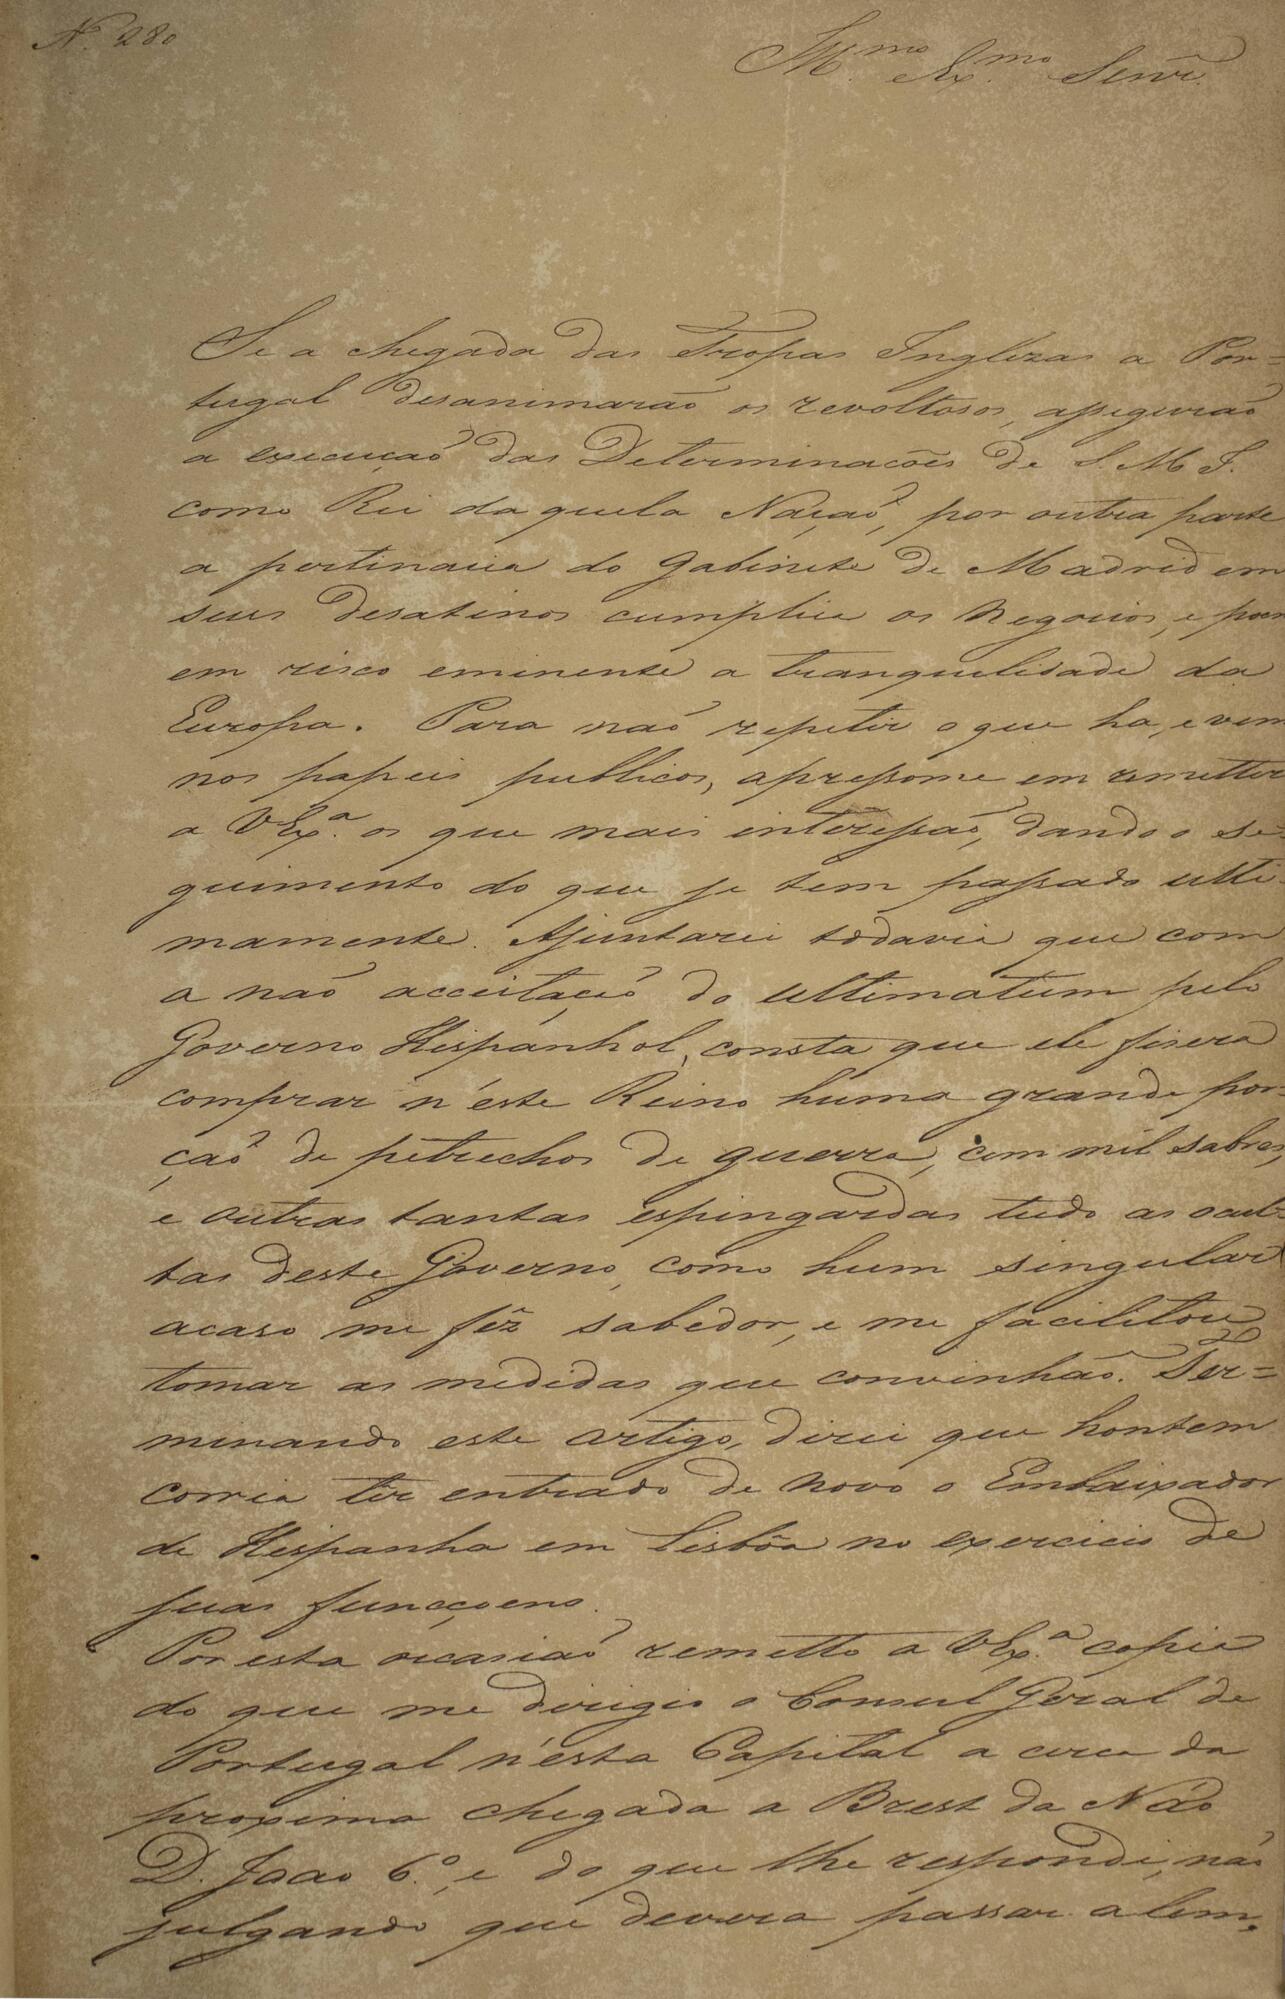 N. 280
Ill.mo Ex.mo Senr.
Se a chegada das Tropas Inglezas a Por=
tugal desanimarão os revoltosos, assegurão
a execução das Determinacões de S. M. F.
como Rei da quela Nação, por outra parte
a pertinacia do Gabinete de Madrid em
seus desatinos cumplica os Negocios, e poem
em risco eminente a tranquilidade da
Europa. Para não repetir o que ha, e vem
nos papeis publicos, apressome em remetter
a V Ex.ª os que mais interessão, dando o se
guimento do que se tem passado ulti
mamente. Ajuntarei todavia que com
a não acceitação do ultimatum pelo
Governo Hispanhol, consta que ele fisera
comprar n'éste Reino huma grande por-
ção de petrechos de guerra, cem mil sabres,
e outras tantas espingardas tudo as ocul-
tas deste Governo, como hum singular
acaso me fêz sabedor, e me facilitou
tomar as medidas que convinhão. Ter=
minando este artigo, direi que hontem
corria ter entrado de novo o Embaixador
de Hispanha em Lisbôa no exercicio de
suas funcçoens.
Por esta occasião remetto a V Ex.ª copia
do que me dirigio o Consul Geral de
Portugal n'esta Capital a cerca da
proxima chegada a Brest da Não
D. Joao 6.º, e do que lhe respondi, não
julgando que devera passar alem,